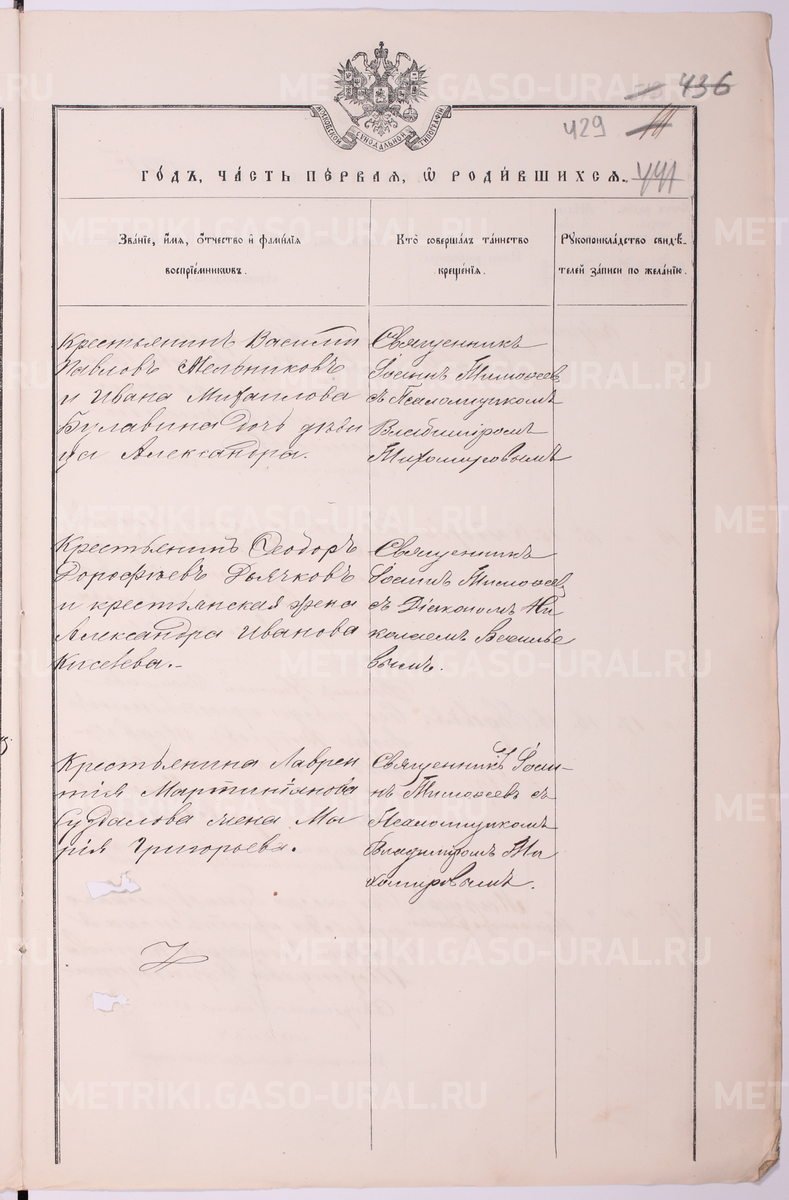 436
МОСКОВСКОЙ СѴНОДАЛЬНОЙ ТИПОГРАФІИ
429
ГО́ДЪ, ЧА́СТЬ ПЕ́РВАЯ, Ѡ҆ РОДИ́ВШИХСЯ.
441
Зва́нїе, и҆́мя, ѻ҆́тчество и҆ фами́лїя
воспрїе́мникѡвъ.
Кто̀ соверша́лъ та́инство
креще́нїя.
Рꙋкоприкла́дство свидѣ́-
телей за́писи по жела́нїю.
Крестьянинъ Василій
Павловъ Мельниковъ
и Ивана Михаилова
Булавина дочь дѣви
ца Александра.
Священникъ
Іоаннъ Тимоѳеев
съ Псаломщикомъ
Владиміромъ
Тихомировымъ
Крестьянинъ Ѳеодоръ
Дорофѣевъ Дьячковъ
и крестьянская жена
Александра Иванова
Киселева.-
Священникъ
Іоаннъ Тимоѳеев
съ Діакономъ Ни
колаемъ Василье
вымъ.
Крестьянина Лаврен
тія Мартиніанова
Суздалова жена Ма
рія Григорьева.
Священникъ Іоан-
нъ Тимоѳеевъ съ
Псаломщикомъ
Владиміромъ Ти
хомировымъ.
METRIKI.GASO-URAL.RU